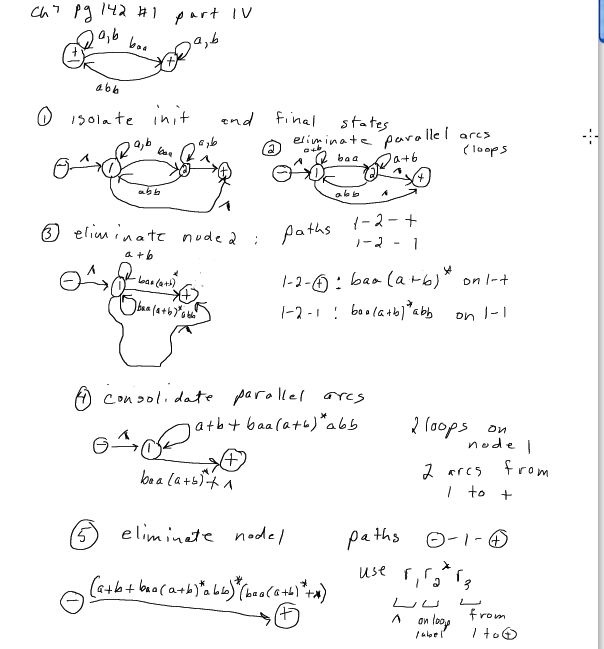 Ch 7 pg 142 #1 part IV
± a,b baa + a,b
abb
① isolate init and final states
② eliminate parallel arcs
(loops
− Λ 1 a,b baa 2 a,b Λ +
abb
Λ
− Λ 1 a+b baa 2 a+b Λ +
abb Λ
③ eliminate node 2 : paths 1-2-+
1-2-1
a+b
− Λ 1 baa(a+b)* +
baa(a+b)*abb
Λ
1-2-⊕ : baa(a+b)* on 1-+
1-2-1 : baa(a+b)*abb on 1-1
④ consolidate parallel arcs
− Λ 1 a+b+baa(a+b)*abb
+
baa(a+b)*+Λ
2 loops on
node 1
2 arcs from
1 to +
⑤ eliminate node 1 paths ⊖-1-⊕
use r₁r₂*r₃
Λ on loop label from 1 to ⊕
(a+b+baa(a+b)*abb)*(baa(a+b)*+Λ)
− +